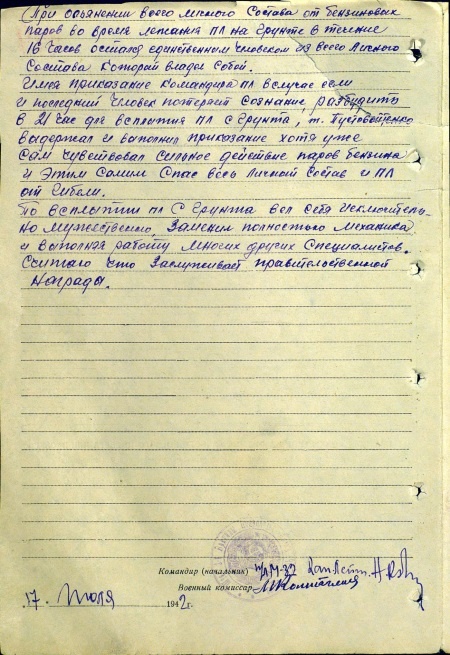 (При опьянении всего личного Состава от бензиновых
паров во время лежания пл на грунте в течение
16 часов остался единственным человеком из всего личного
Состава который владел Собой.
Имея приказание командира пл вслучае если
и последний человек потеряет сознание разбудить
в 21 час для всплытия пл с грунта, т. Пустовойтенко
выдержал и выполнил приказание хотя уже
сам чувствовал сильное действие паров бензина
и этим самим спас весь личный состав и ПЛ
от гибели.
По всплытии пл с грунта вел себя исключитель-
но мужественно, Заменил полностью механика
и выполнял работу многих других специалистов.
Считаю что заслуживает правительственной
Награды.
Командир (начальник) п/л М-32 Кап. Лейт.
Военный комиссар
17. Июля 1942г.